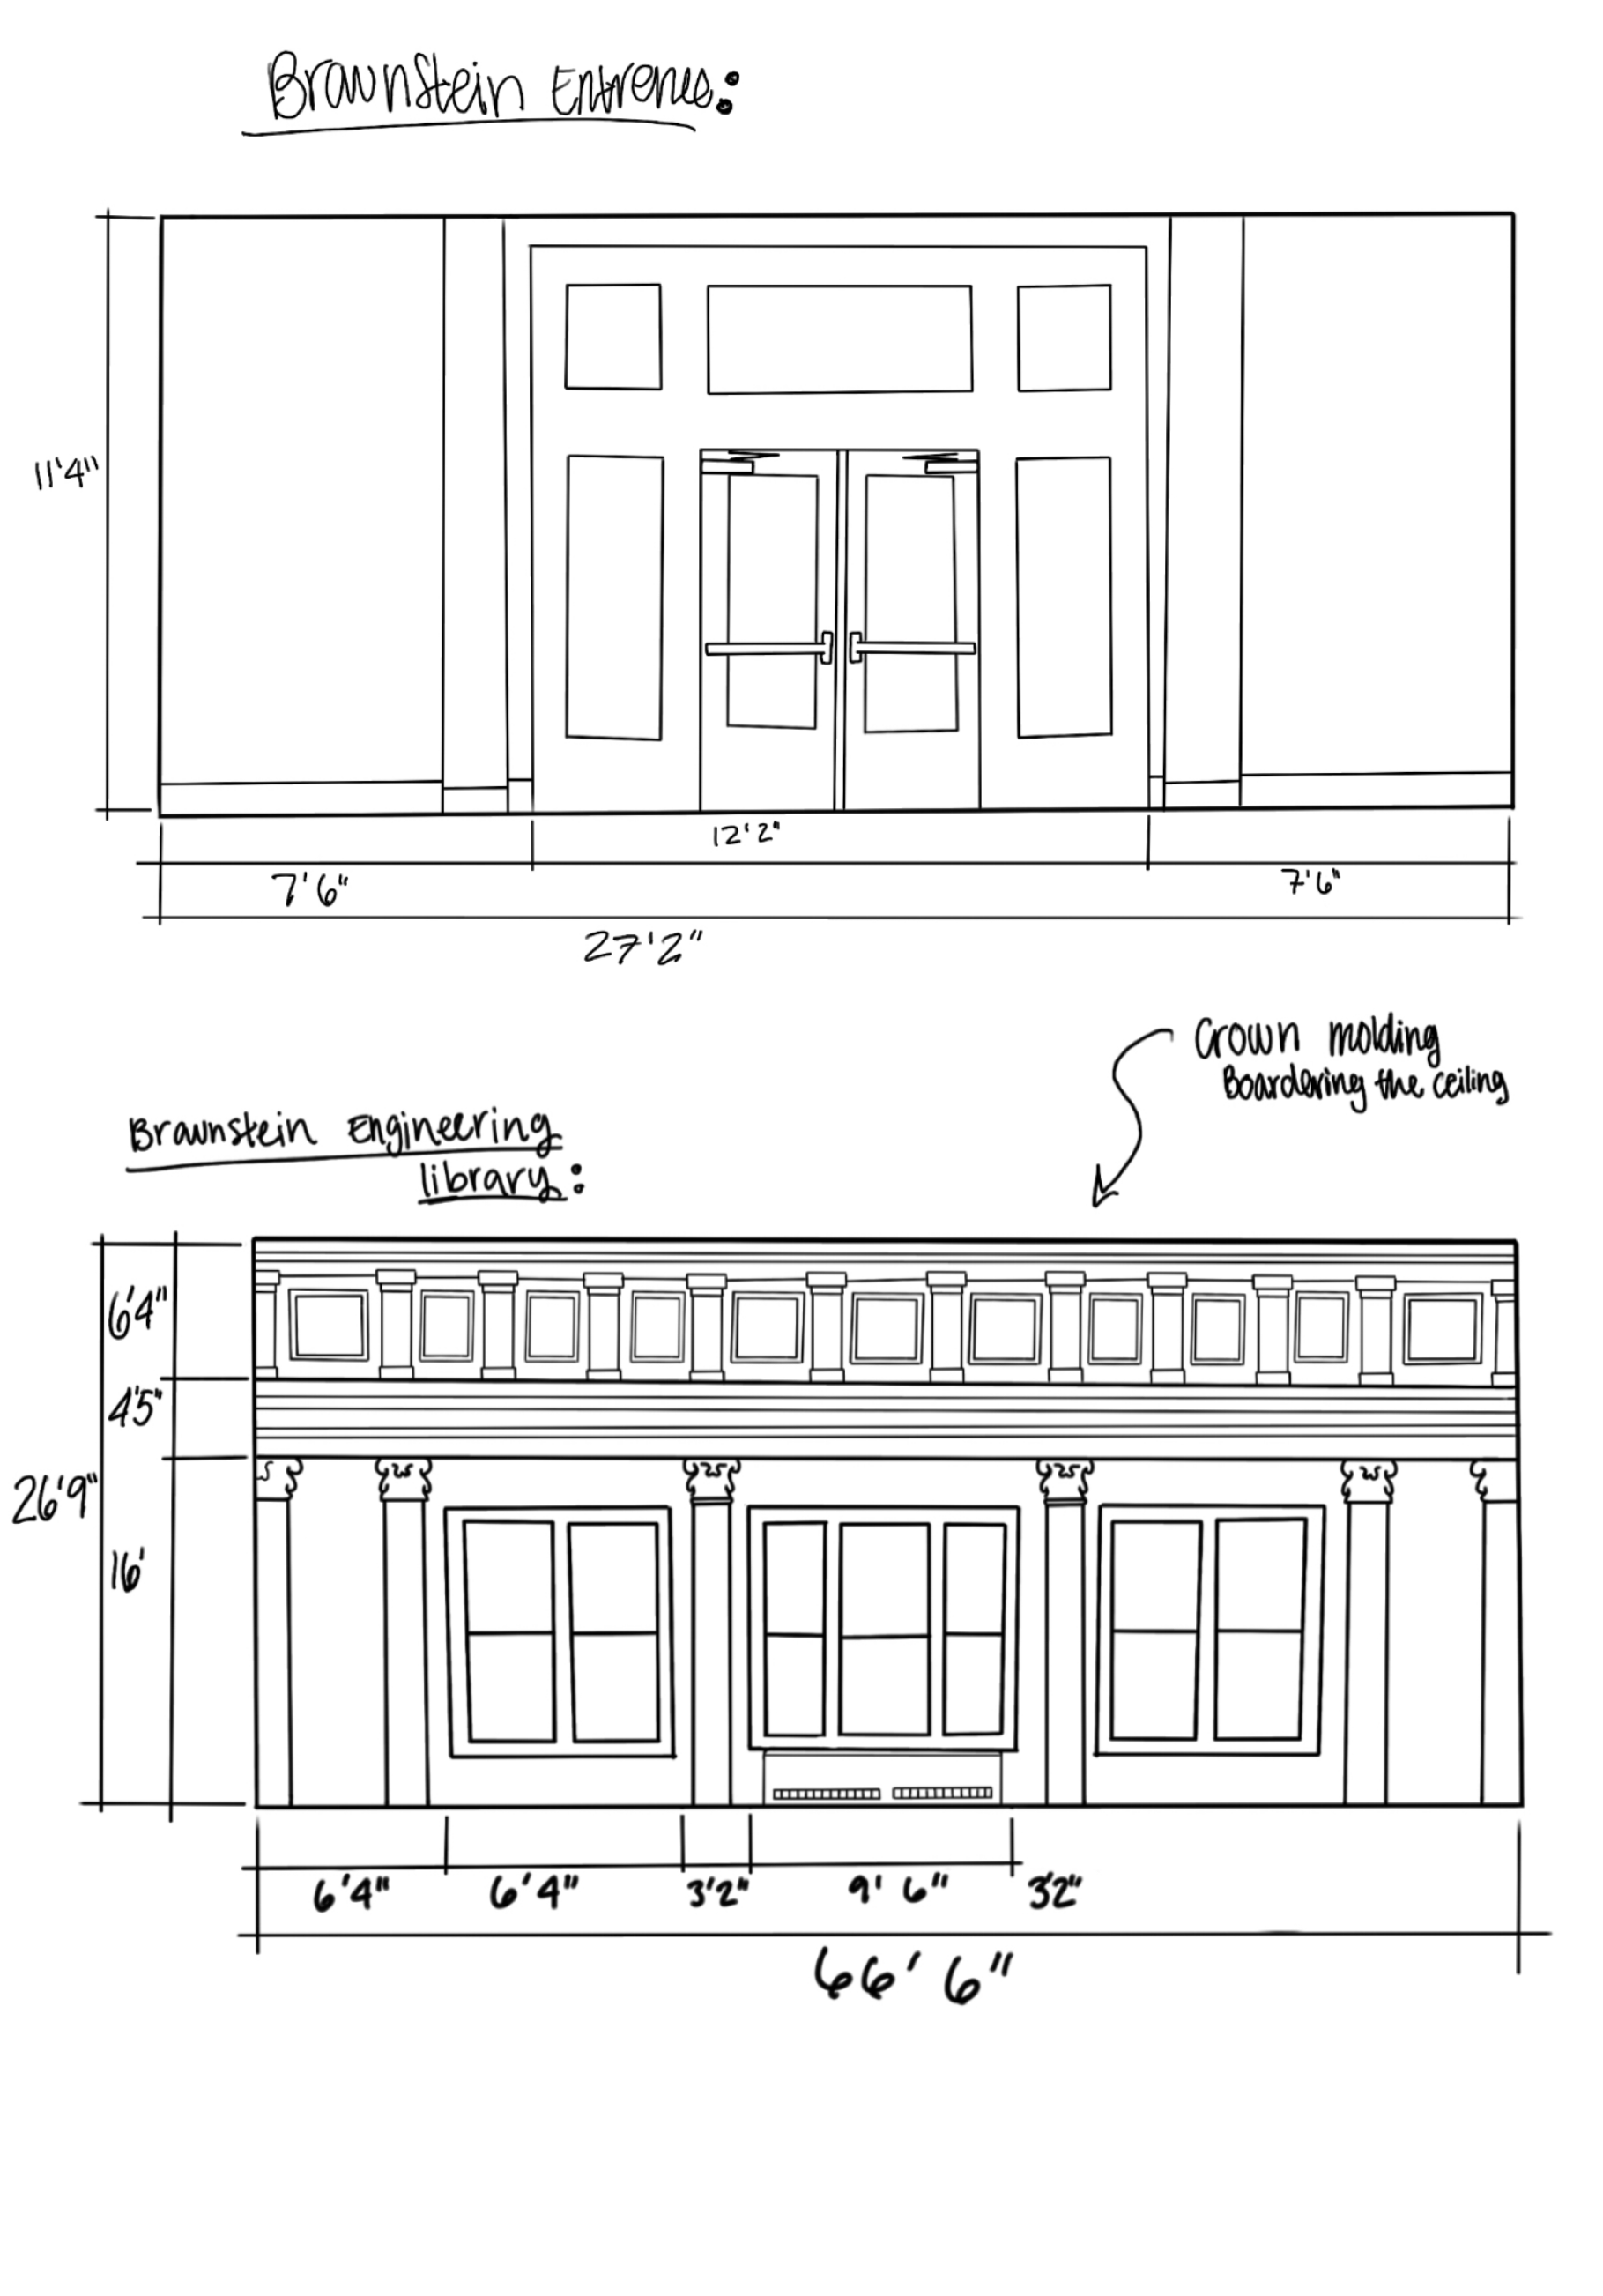 Braunstein Entrence:
11'4"
12'2"
7'6"
7'6"
27'2"
Crown molding
Boardering the ceiling
Braunstein Engineering
library:
6'4"
4'5"
26'9"
16'
6'4"
6'4"
3'2"
9'6"
3'2"
66'6"